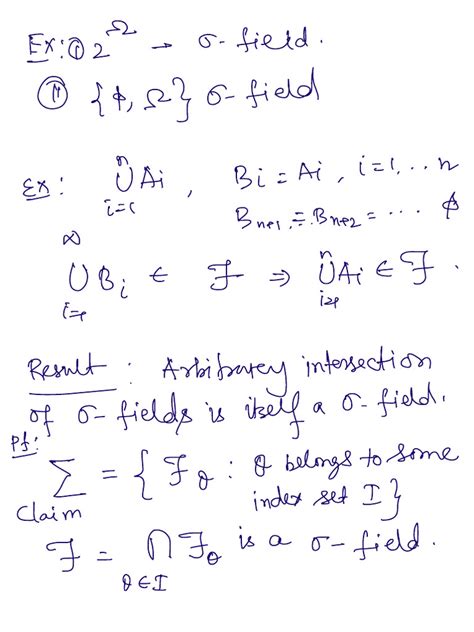 Ex: ① 2^Ω → σ-field.
② {ϕ, Ω} σ-field
Ex: ⋃_{i=1}^{n} Ai , Bi = Ai , i=1, .. n
B_{n+1} = B_{n+2} = ... ϕ
⋃_{i=1}^{∞} Bi ∈ ℱ ⇒ ⋃_{i=1}^{n} Ai ∈ ℱ.
Result : Arbitrary intersection
of σ-fields is itself a σ-field.
Pf:
Σ = { ℱ_θ : θ belongs to some
index set I}
Claim
ℱ = ⋂_{θ∈I} ℱ_θ is a σ-field.